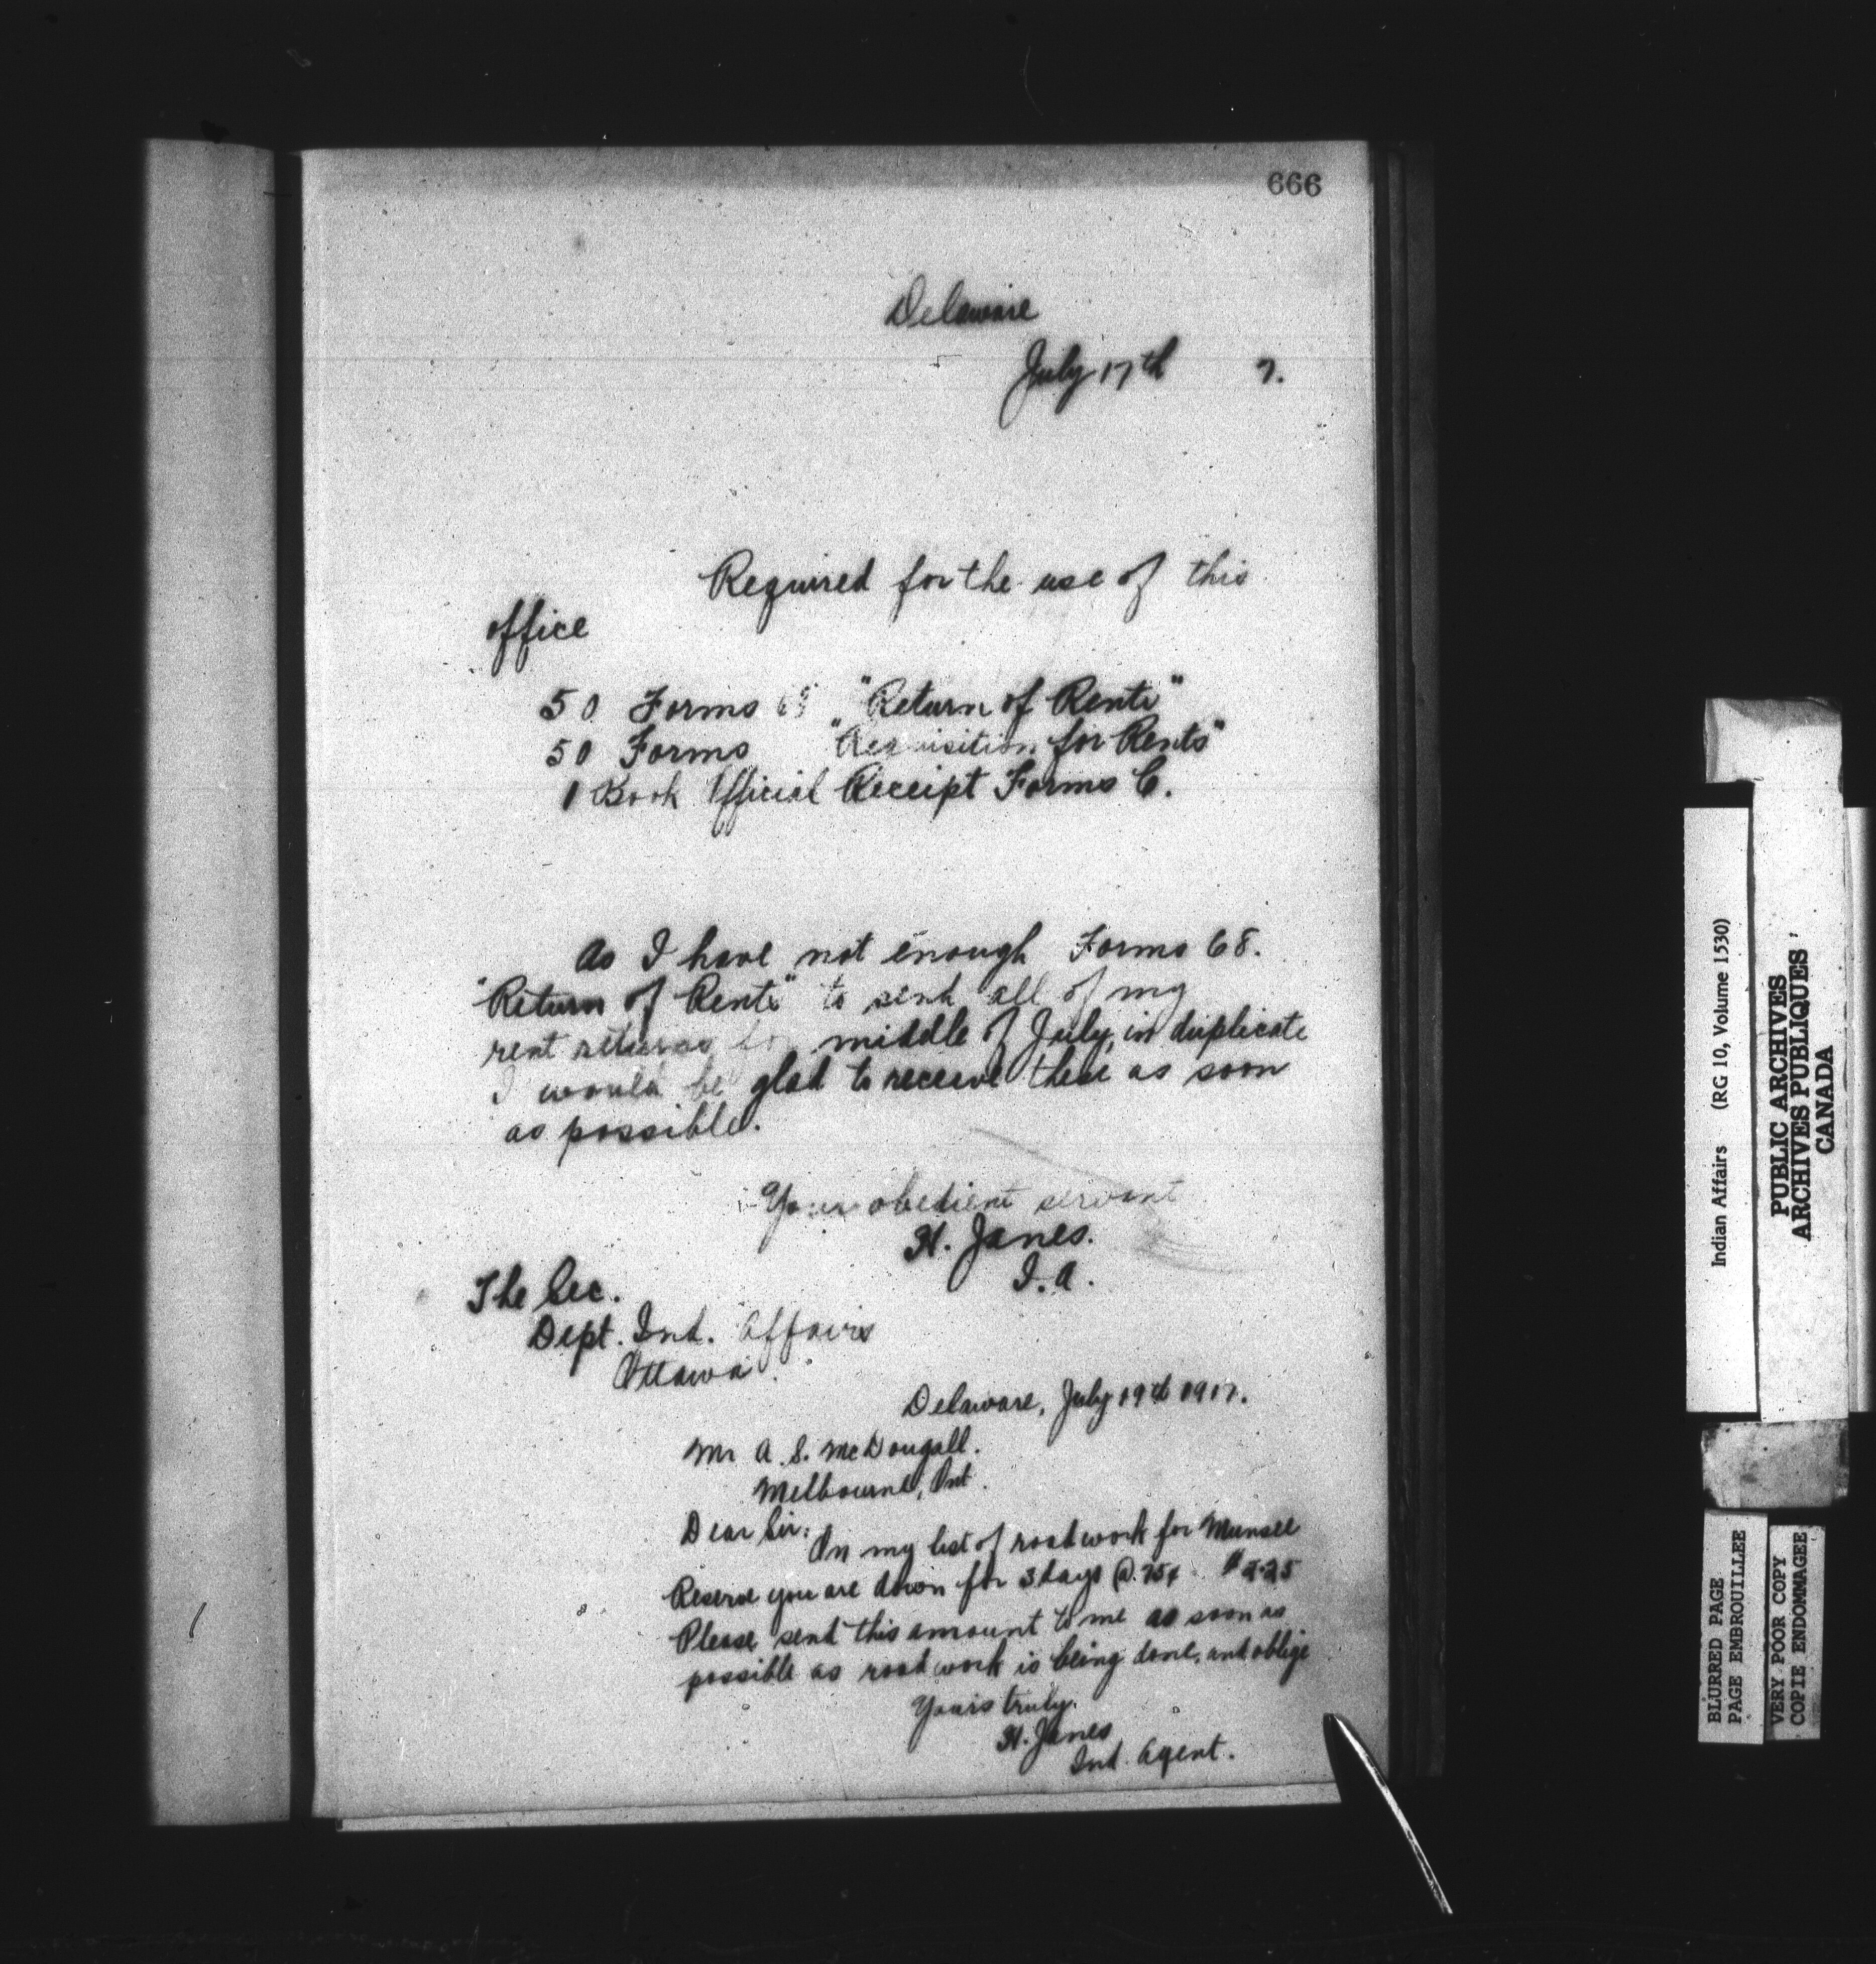 666
Delaware
July 17th 7.
Required for the use of this
office
50 Forms 68 "Return of Rents"
50 Forms "Requisition for Rents"
1 Book Official Receipt Forms C.
As I have not enough Forms 68.
"Return of Rents" to send all of my
rent returns middle of July, in duplicate
I would be glad to receive these as soon
as possible.
Your obedient servant
H. Janes.
I.A.
The Sec.
Dept. Ind. Affairs
Ottawa.
Delaware, July 19th 1917.
Mr A. S. McDougall.
Melbourne, Ont.
Dear Sir:
On my list of road work for Munsee
Reserve you are down for 3 days @ .75¢ $2.25
Please send this amount to me as soon as
possible as road work is being done, and oblige
Yours truly.
H. Janes
Ind. Agent.
Indian Affairs (RG 10, Volume 1530)
PUBLIC ARCHIVES
ARCHIVES PUBLIQUES
CANADA
BLURRED PAGE
PAGE EMBROUILLEE
VERY POOR COPY
COPIE ENDOMMAGEE